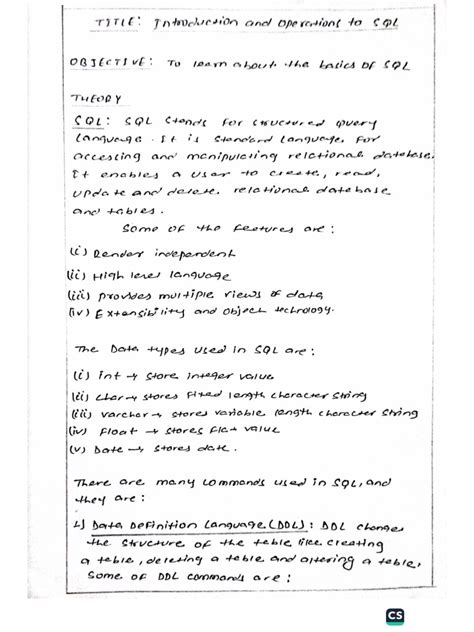 TITLE: Introduction and operations to SQL
OBJECTIVE: To learn about the basics of SQL
THEORY
SQL: SQL stands for structured query
language. It is standard language for
accessing and manipulating relational database.
It enables a user to create, read,
update and delete relational database
and tables.
Some of the features are:
(i) Render independent
(ii) High level language
(iii) provides multiple views of data
(iv) Extensibility and object technology.
The Data types used in SQL are:
(i) int → store integer value
(ii) char → stores fixed length character string
(iii) varchar → stores variable length character string
(iv) float → stores float value
(v) Date → stores date.
There are many commands used in SQL, and
they are:
1) Data Definition Language (DDL): DDL changes
the structure of the table like creating
a table, deleting a table and altering a table.
Some of DDL commands are:
CS